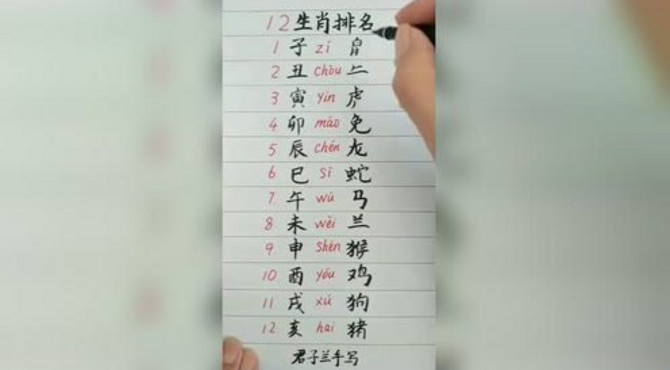 12生肖排名
1 子 zí
2 丑 chòu
3 寅 yín 虎
4 卯 mǎo 兔
5 辰 chén 龙
6 巳 sì 蛇
7 午 wǔ 马
8 未 wèi 兰
9 申 shēn 猴
10 酉 yǒu 鸡
11 戌 xū 狗
12 亥 hài 猪
君子兰手写